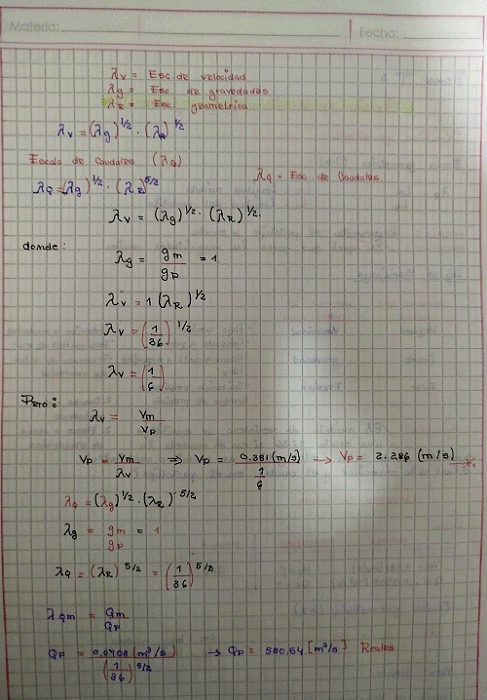 Materia:
Fecha:
λv = Esc de velocidad
λg = Esc de gravedades
λR = Esc geometrica
λv = (λg)^1/2 · (λR)^1/2
Escala de Caudales (λQ)
λQ = Esc de Caudales
λQ = (λg)^1/2 · (λR)^5/2
λv = (λg)^1/2 · (λR)^1/2.
donde:
λg = gm/gp = 1
λv = 1 (λR)^1/2
λv = (1/36)^1/2
λv = (1/6)
Pero:
λv = Vm/Vp
Vp = Vm/λv ⇒ Vp = 0.381 (m/s) / 1/6 → Vp = 2.286 (m/s)
λQ = (λg)^1/2 · (λR)^5/2
λg = gm/gp = 1
λQ = (λR)^5/2 = (1/36)^5/2
λQm = Qm/Qp
Qp = 0.0708 (m³/s) / (1/36)^5/2 → Qp = 550.54 [m³/s] Reales